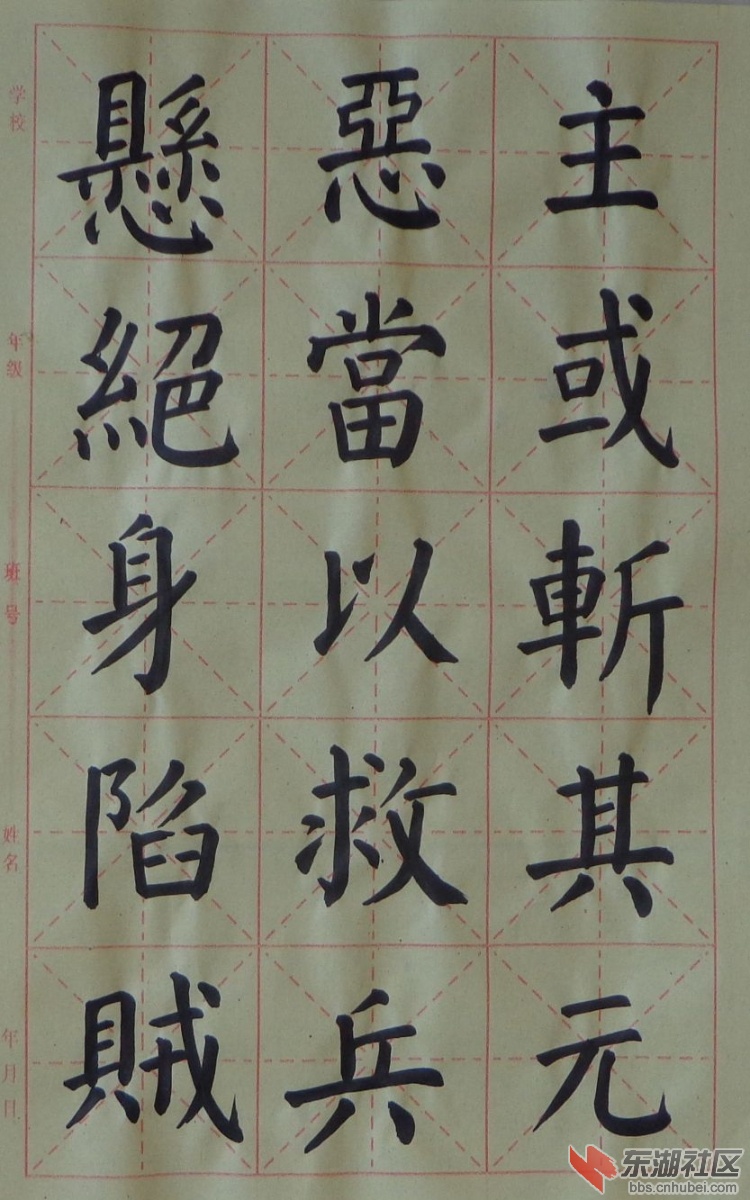 主或斬其元
惡當以救兵
懸絕身陷賊
学校
年级
班号
姓名
年月日
东湖社区
bbs.cnhubei.com